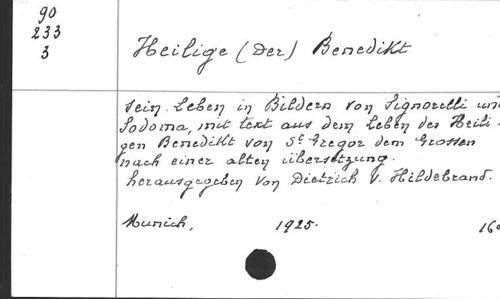 90
233
3
Heilige (Der) Benedikt
sein Leben in Bildern von Signorelli und
Sodoma, mit text aus dem Leben des Heili-
gen Benedikt von St Gregor dem Grossen
nach einer alten übersetzung.
herausgegeben von Dietrich v. Hildebrand.
Munich, 1925. 16°